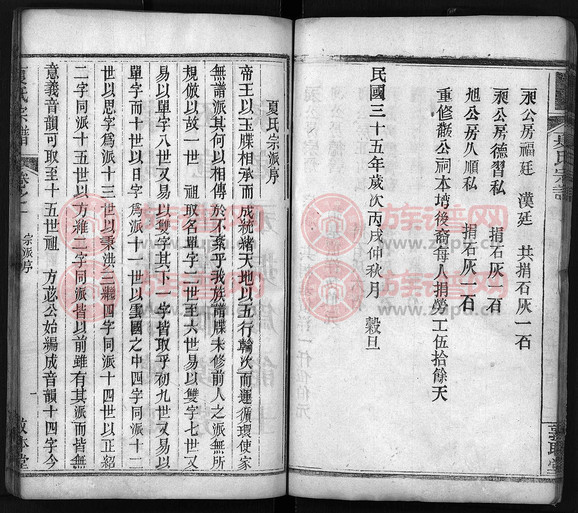 汞公房福廷 漢廷 共捐石灰一石
汞公房德習私 捐石灰一石
旭公房久順私 捐石灰一石
重修馥公祠本埥後裔每人捐勞工伍拾餘天
民國三十五年歲次丙戌仲秋月 穀旦
夏氏宗譜
敦本堂
夏氏宗派序
帝王以玉牒相承而成統緒天地以五行輪次而運循環使家
無譜派其何以相傳於不紊乎我族譜牒未修前人之派無所
規倣以故一世 祖取名單字二世至六世易以雙字七世又
易以單字八世又易以雙字其下 字皆取乎初九世又易以
單字而十世以日字為派十一世以 國之中四字同派十二
世以思字為派十三世以秉洪三 四字同派十四世以正紹
二字同派十五世以方 二字同派皆以前雖有其派而皆無
意義音韻可取至十五世祖 方苾公始編成音韻十四字今
夏氏宗譜 卷之一 宗派序 一 敦本堂
族谱网
www.zupu.cn